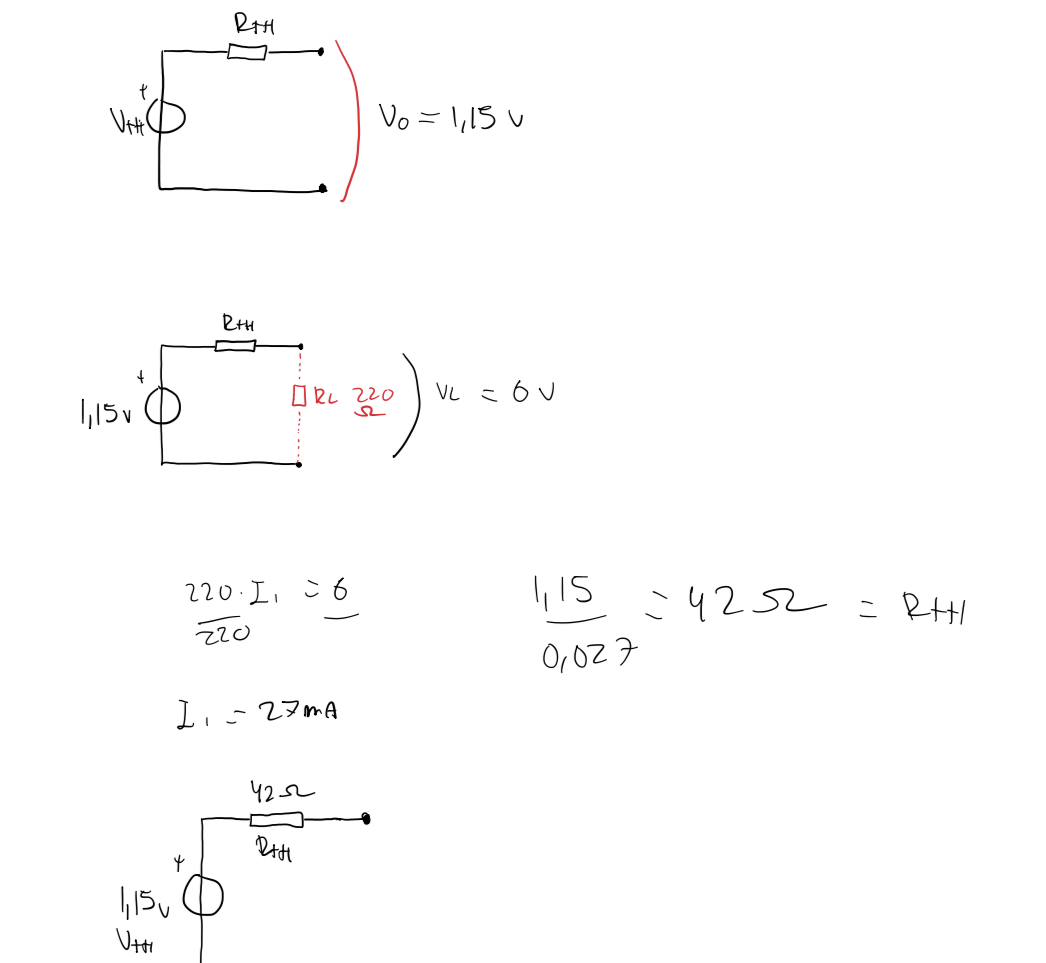 RTH
+
VTH
V0 = 1,15 V
RTH
+
1,15 V
RL 220 Ω
VL = 6 V
220 · I1 = 6
220
1,15 = 42 Ω = RTH
0,027
I1 = 27 mA
42 Ω
RTH
+
1,15 V
VTH